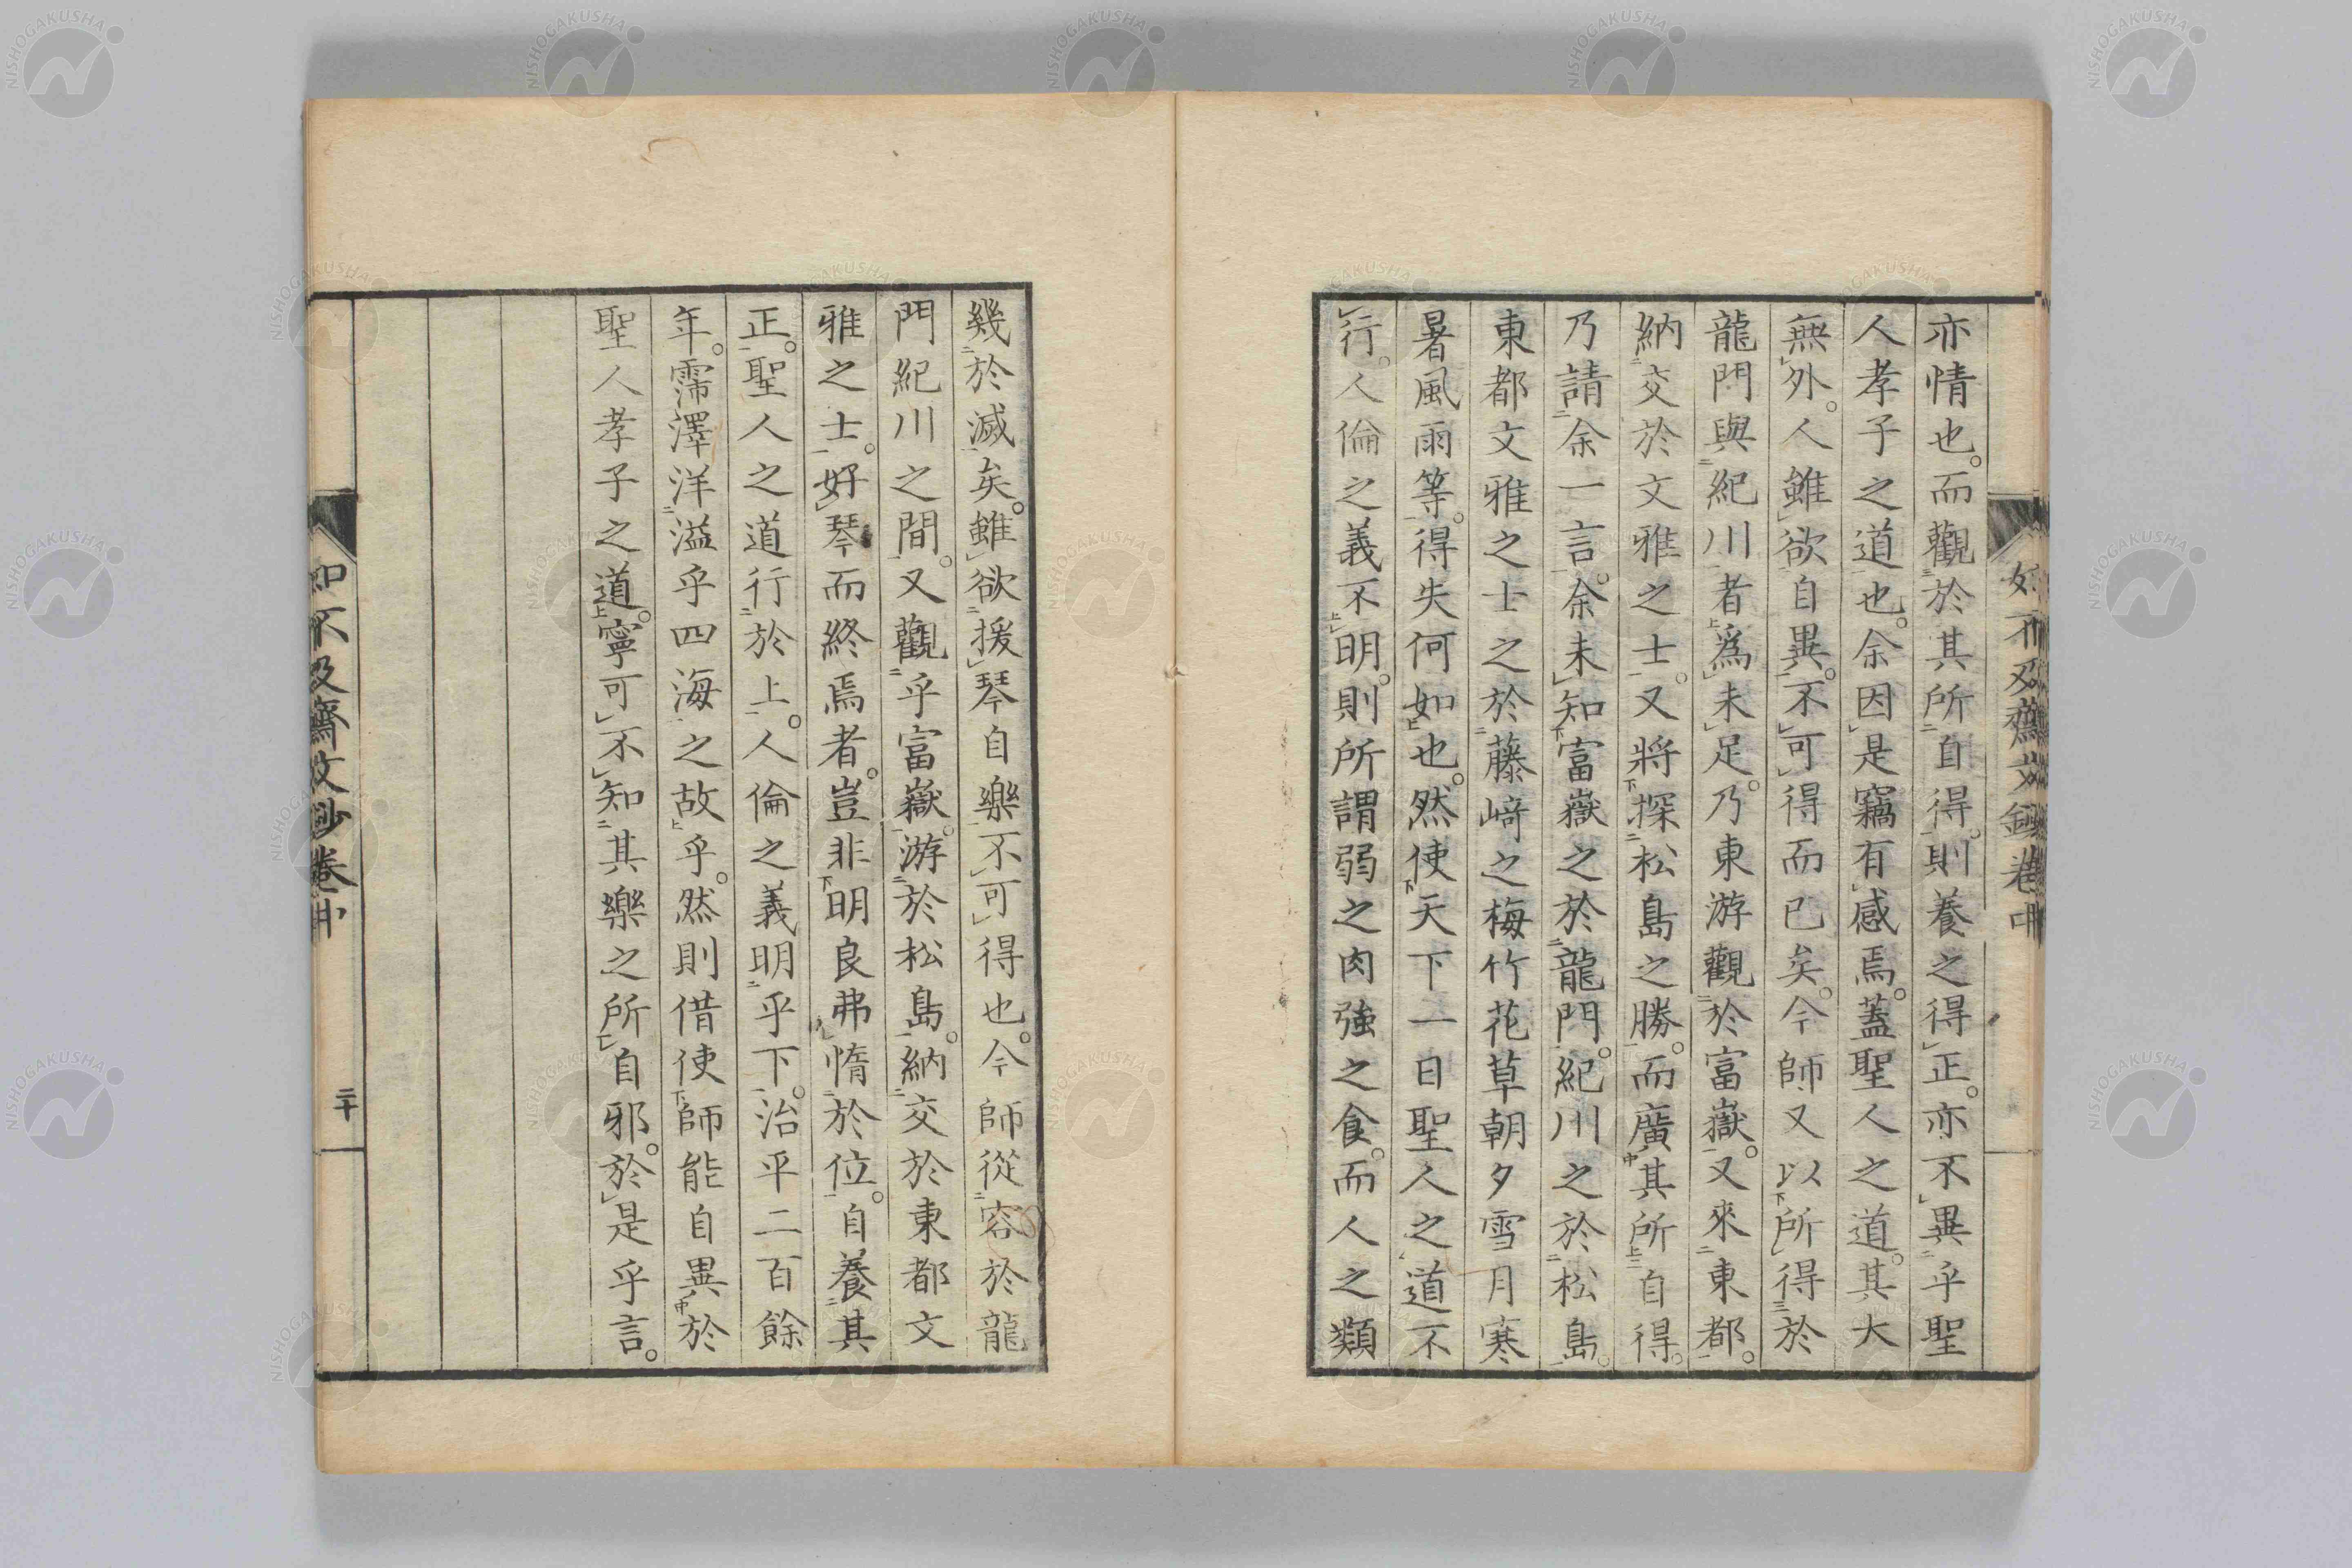 亦情也。而觀於其所自得。則養之得正。亦不異乎聖
人孝子之道也。余因是竊有感焉。蓋聖人之道。其大
無外。人雖欲自異。不可得而已矣。今師又以所得於
龍門與紀川者爲未足。乃東游觀於富嶽。又來東都。
納交於文雅之士。又將探松島之勝。而廣其所自得。
乃請余一言。余未知富嶽之於龍門。紀川之於松島。
東都文雅之士之於藤崎之梅竹花草朝夕雪月寒
暑風雨等。得失何如也。然使天下一日聖人之道不
行。人倫之義不明。則所謂弱之肉強之食。而人之類
幾於滅矣。雖欲援琴自樂不可得也。今師從容於龍
門紀川之間。又觀乎富嶽。游於松島。納交於東都文
雅之士。好琴而終焉者。豈非明良弗惰於位。自養其
正。聖人之道行於上。人倫之義明乎下。治平二百餘
年。霈澤洋溢乎四海之故乎。然則借使師能自異於
聖人孝子之道。寧可不知其樂之所自邪。於是乎言。
知不及齋文鈔卷中
二十
NISHOGAKUSHA